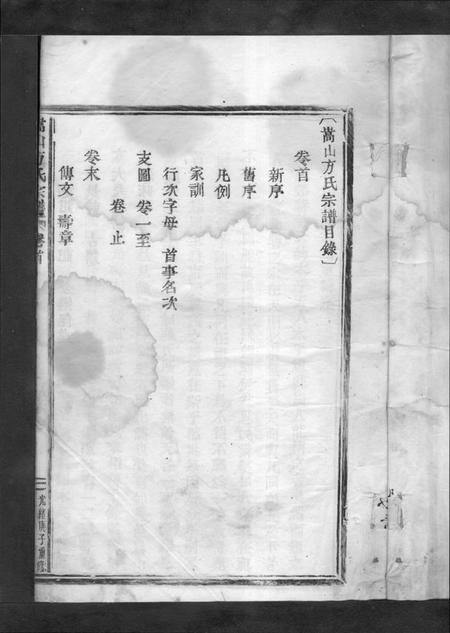 〔嵩山方氏宗譜目錄〕
卷首
新序
舊序
凡例
家訓
行次字母 首事名次
支圖 卷一至
卷止
卷末
傳文 壽章
嵩山方氏宗譜 卷首
光緒庚子重修